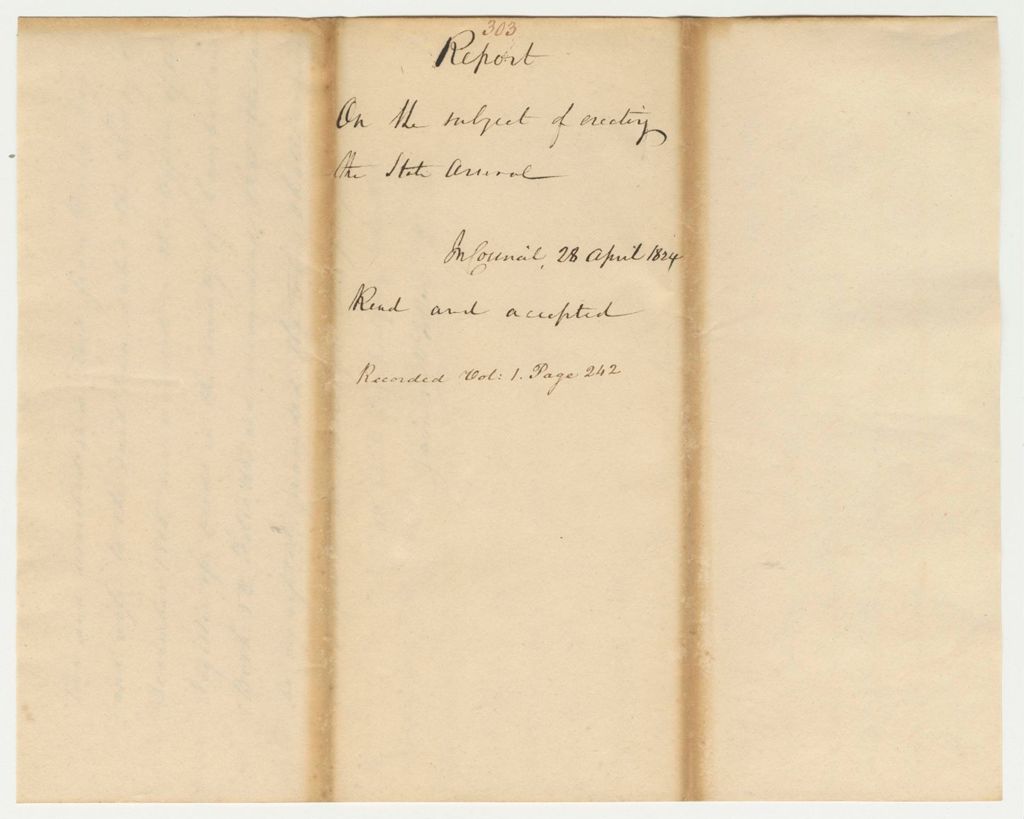 303
Report
On the subject of erecting
the State Arsenal
In Council, 28 April 1824
Read and accepted
Recorded Vol: 1. Page 242